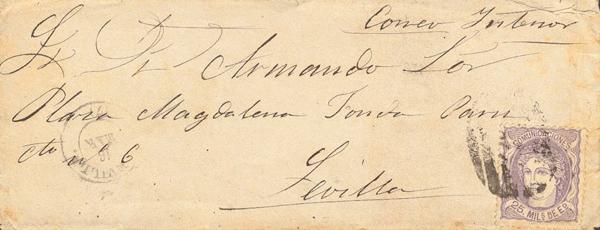 Correo Interior
Sr. Dn. Armando Lor
Plaza Magdalena Fonda Paris
cto nº 6
Sevilla
SEVILLA
MAR
COMUNICACIONES
25 MILS DE ESo